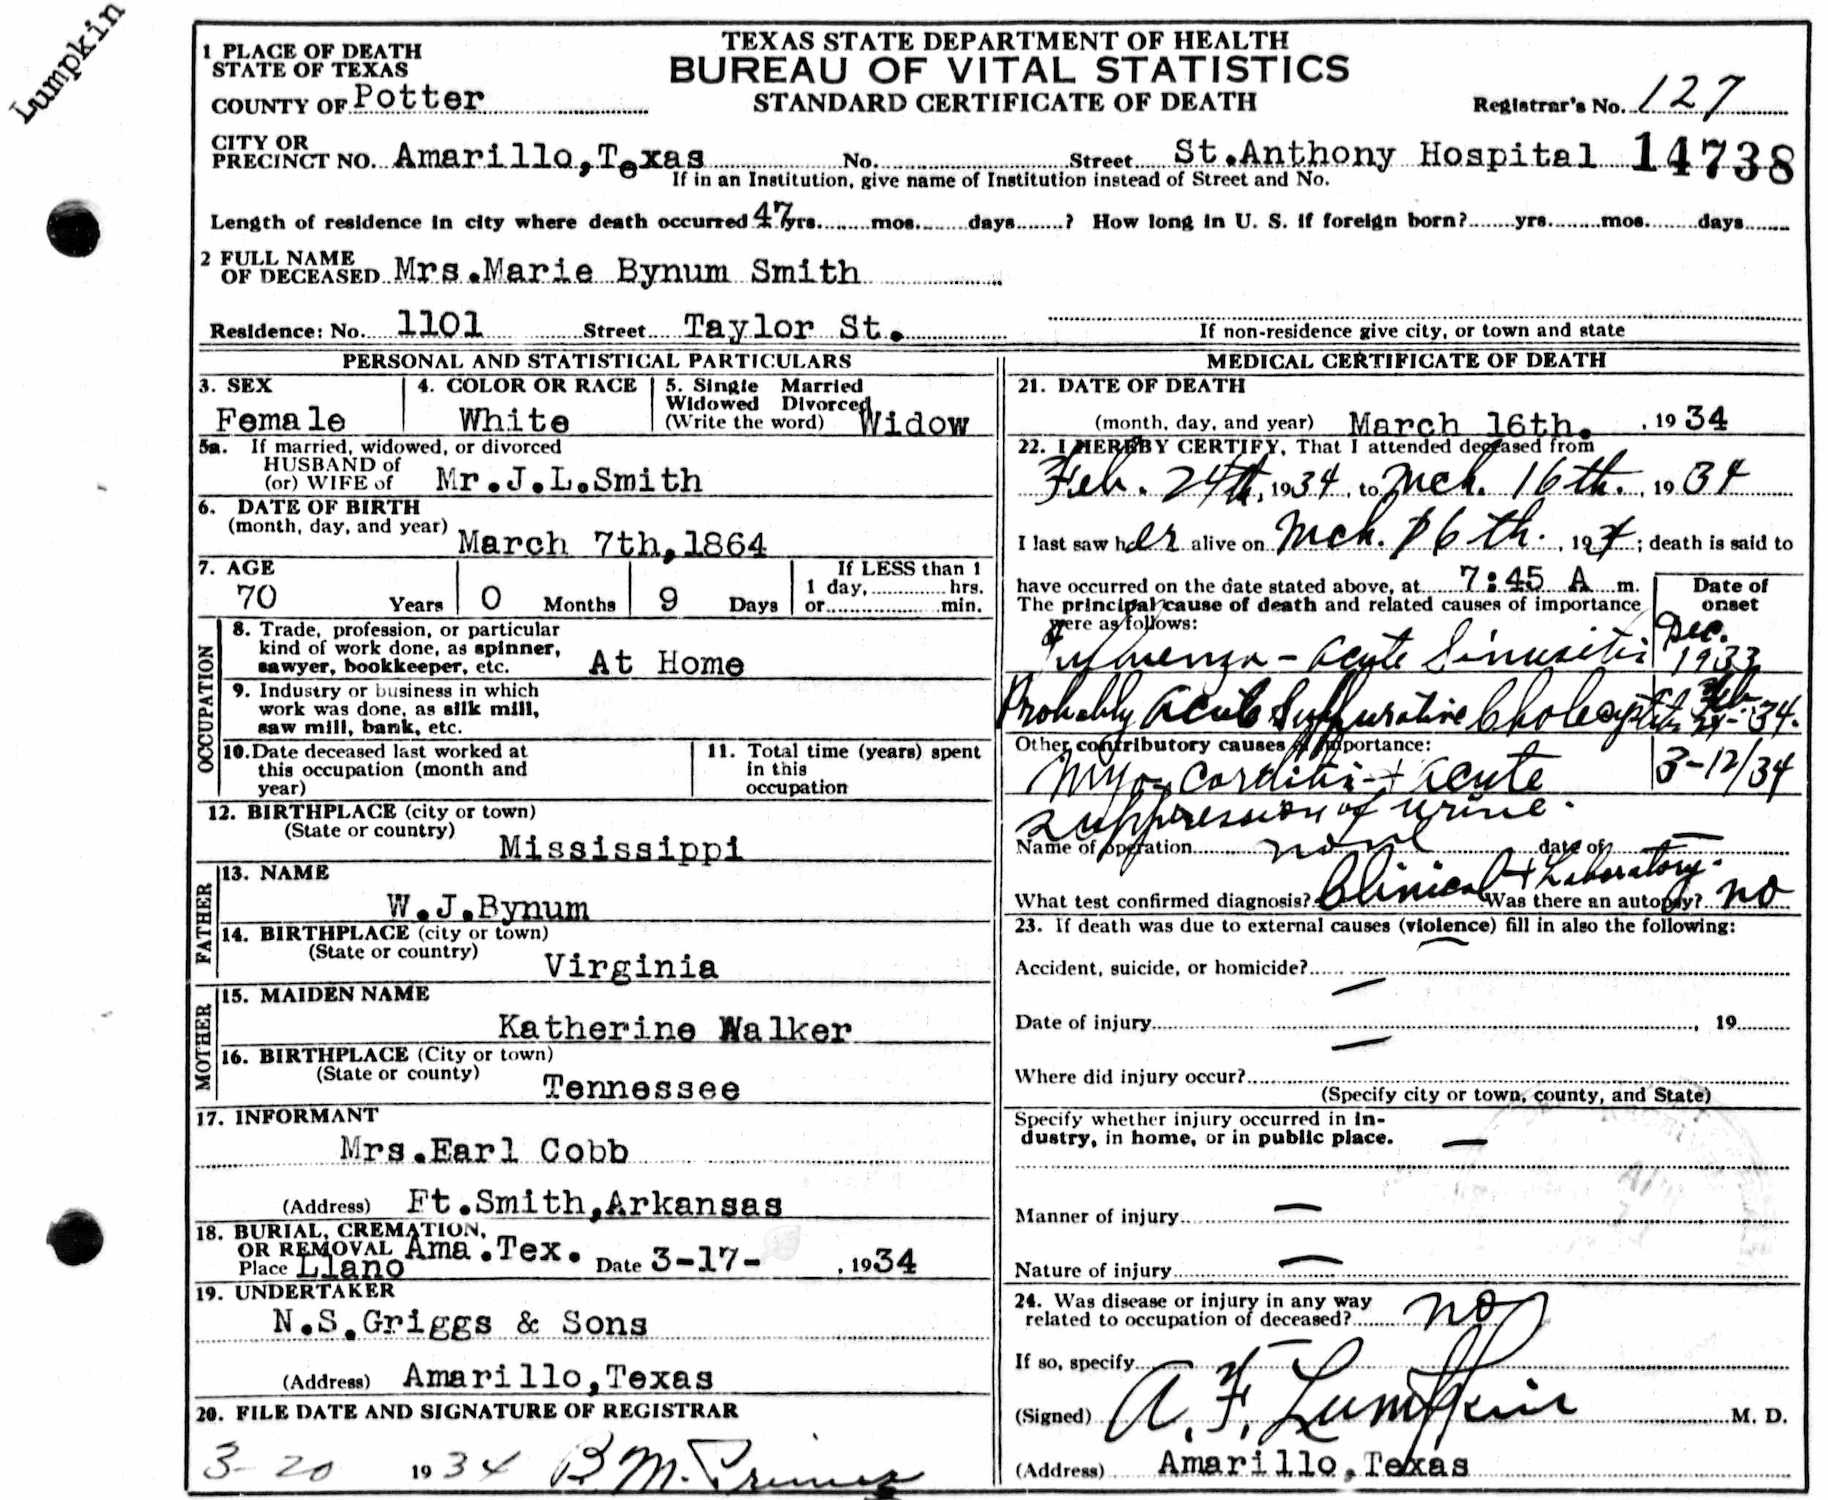 Lumpkin
TEXAS STATE DEPARTMENT OF HEALTH
BUREAU OF VITAL STATISTICS
STANDARD CERTIFICATE OF DEATH
1 PLACE OF DEATH
STATE OF TEXAS
COUNTY OF Potter
Registrar's No. 127
CITY OR
PRECINCT NO. Amarillo,Texas No. Street St.Anthony Hospital 14738
If in an Institution, give name of Institution instead of Street and No.
Length of residence in city where death occurred 47 yrs. mos. days ? How long in U. S. if foreign born? yrs. mos. days
2 FULL NAME
OF DECEASED Mrs.Marie Bynum Smith
Residence: No. 1101 Street Taylor St.
If non-residence give city, or town and state
PERSONAL AND STATISTICAL PARTICULARS
3. SEX
Female
4. COLOR OR RACE
White
5. Single Married
Widowed Divorced
(Write the word) Widow
5a. If married, widowed, or divorced
HUSBAND of
(or) WIFE of Mr.J.L.Smith
6. DATE OF BIRTH
(month, day, and year) March 7th,1864
7. AGE
70 Years 0 Months 9 Days
If LESS than 1
1 day, hrs.
or min.
OCCUPATION
8. Trade, profession, or particular
kind of work done, as spinner,
sawyer, bookkeeper, etc. At Home
9. Industry or business in which
work was done, as silk mill,
saw mill, bank, etc.
10.Date deceased last worked at
this occupation (month and
year)
11. Total time (years) spent
in this
occupation
12. BIRTHPLACE (city or town)
(State or country) Mississippi
FATHER
13. NAME
W.J.Bynum
14. BIRTHPLACE (city or town)
(State or country) Virginia
MOTHER
15. MAIDEN NAME
Katherine Walker
16. BIRTHPLACE (City or town)
(State or county) Tennessee
17. INFORMANT
Mrs.Earl Cobb
(Address) Ft.Smith,Arkansas
18. BURIAL, CREMATION,
OR REMOVAL Ama.Tex.
Place Llano Date 3-17- , 1934
19. UNDERTAKER
N.S.Griggs & Sons
(Address) Amarillo,Texas
20. FILE DATE AND SIGNATURE OF REGISTRAR
3-20 1934 B. M.
MEDICAL CERTIFICATE OF DEATH
21. DATE OF DEATH
(month, day, and year) March 16th. , 1934
22. I HEREBY CERTIFY, That I attended deceased from
Feb. 24th, 1934, to Mch. 16th. , 1934
I last saw her alive on Mch. 16th. , 1934; death is said to
have occurred on the date stated above, at 7:45 A m.
The principal cause of death and related causes of importance
were as follows:
Date of
onset
Influenza - acute Sinusitis Dec. 1933
Probably acute Suppurative Cholecystitis Feb 24-34.
Other contributory causes of importance:
Myo-carditis + acute 3-12/34
suppression of urine.
Name of operation none date of —
What test confirmed diagnosis? Clinical + Laboratory. Was there an autopsy? no
23. If death was due to external causes (violence) fill in also the following:
Accident, suicide, or homicide? —
Date of injury — , 19
Where did injury occur? —
(Specify city or town, county, and State)
Specify whether injury occurred in in-
dustry, in home, or in public place. —
Manner of injury —
Nature of injury —
24. Was disease or injury in any way
related to occupation of deceased? no
If so, specify
(Signed) A. F. Lumpkin M. D.
(Address) Amarillo,Texas